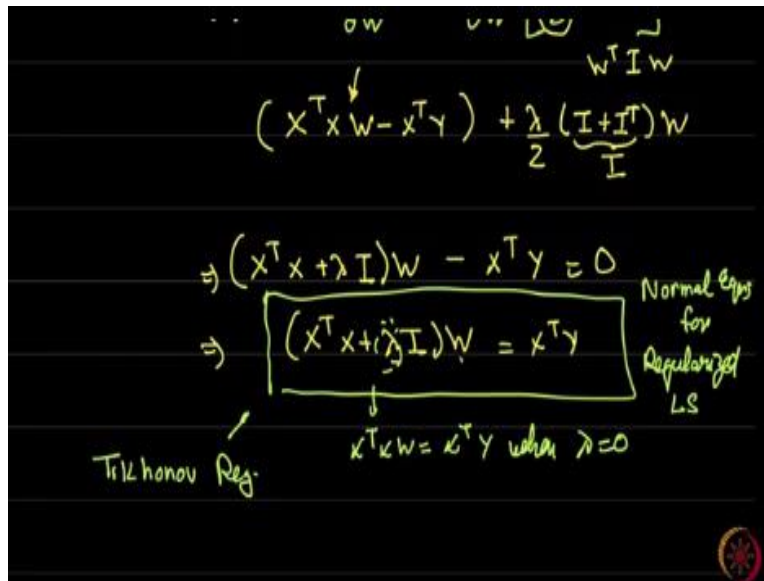 W^T I W
(X^T X W - X^T Y) + λ/2 (I + I^T) W
I
⇒ (X^T X + λ I) W - X^T Y = 0
⇒ (X^T X + λ I) W = X^T Y
Normal Eqns
for
Regularized
LS
X^T X W = X^T Y when λ = 0
Tikhonov Reg.